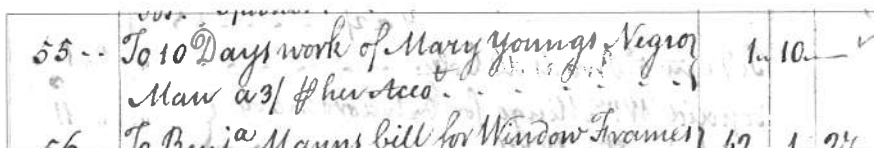 55 -- To 10 Days work of Mary Youngs Negro } 1 " 10 " —
Man a 3/ ⅌ her Acco.t
56 To Benj.a Manns bill for Window Frames } 42 1